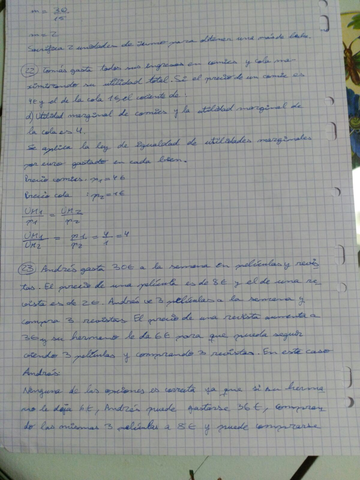 m = 30
15
m = 2
Sacrifica 2 unidades de para obtener una más de
22) Tomás gasta todos sus ingresos en comics y cola ma-
ximizando su utilidad total. Si el precio de un comic es
4€ y el de la cola 1€, el cociente de...
d) Utilidad marginal de comics y la utilidad marginal de
la cola es 4.
Se aplica la ley de igualdad de utilidades marginales
por euro gastado en cada bien.
Precio comics: p1 = 4€
Precio cola : p2 = 1€
UM1 = UM2
p1 p2
UM1 = p1 = 4 = 4
UM2 p2 1
23) Andrés gasta 30€ a la semana en películas y revis-
tas. El precio de una película es de 8€ y el de una re-
vista es de 2€. Andrés ve 3 películas a la semana y
compra 3 revistas. El precio de una revista aumenta a
y su hermano le da 6€ para que pueda seguir
viendo 3 películas y comprando 3 revistas. En este caso
Andrés:
Ninguna de las opciones es correcta ya que si su herma
no le deja 6€, Andrés puede gastarse 36€, compran
do las mismas 3 películas a 8€ y puede comprarse